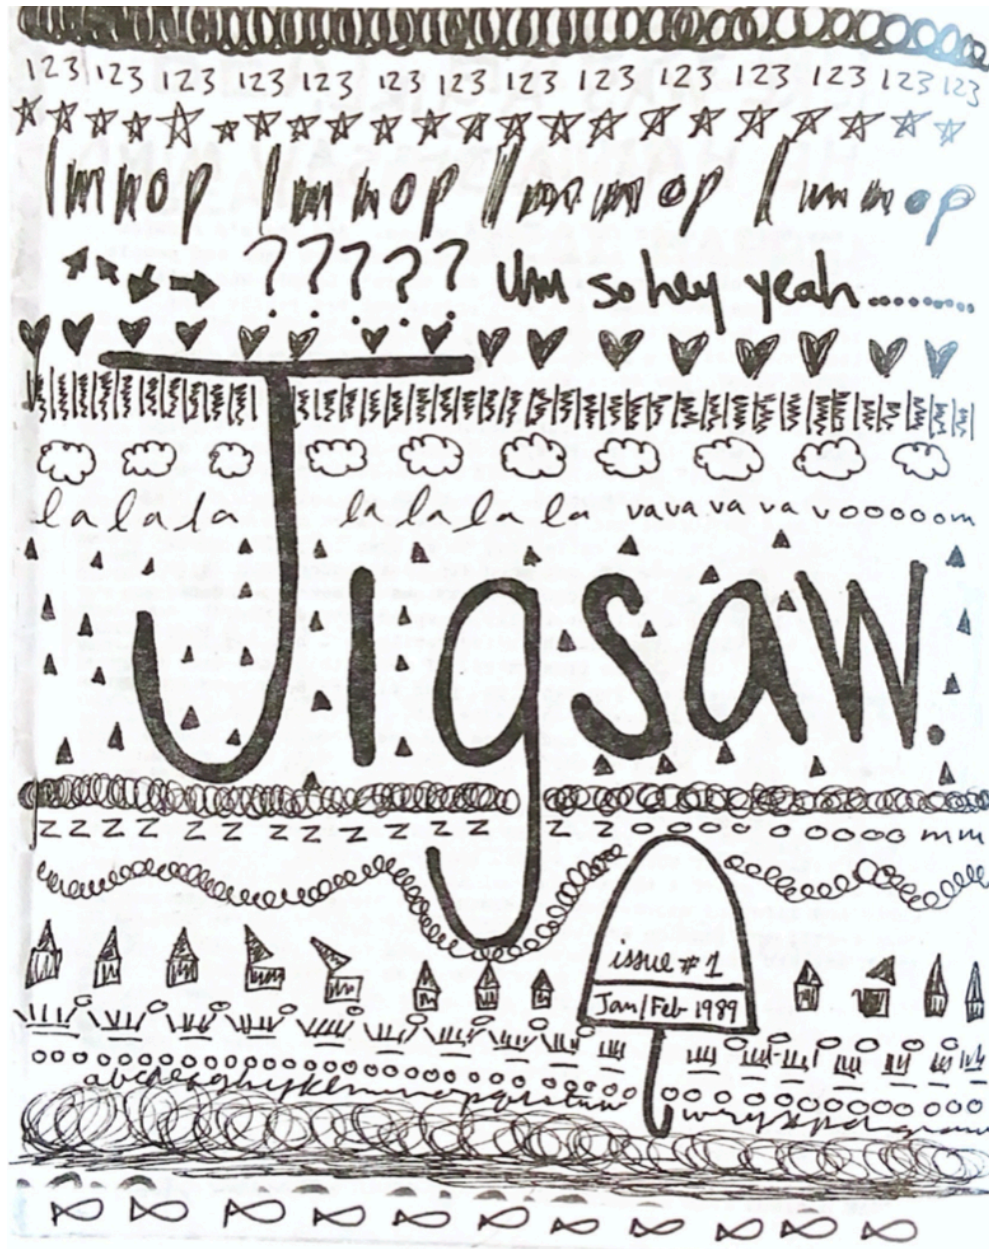 123 123 123 123 123 123 123 123 123 123 123 123 123
lmnop lmnop lmnop lmnop
????? Um so hey yeah..........
la la la la la la la va va va va vooooom
Jigsaw.
zzzz zzzzzzz zzooooooooooo mm
issue #1
Jan/Feb 1989